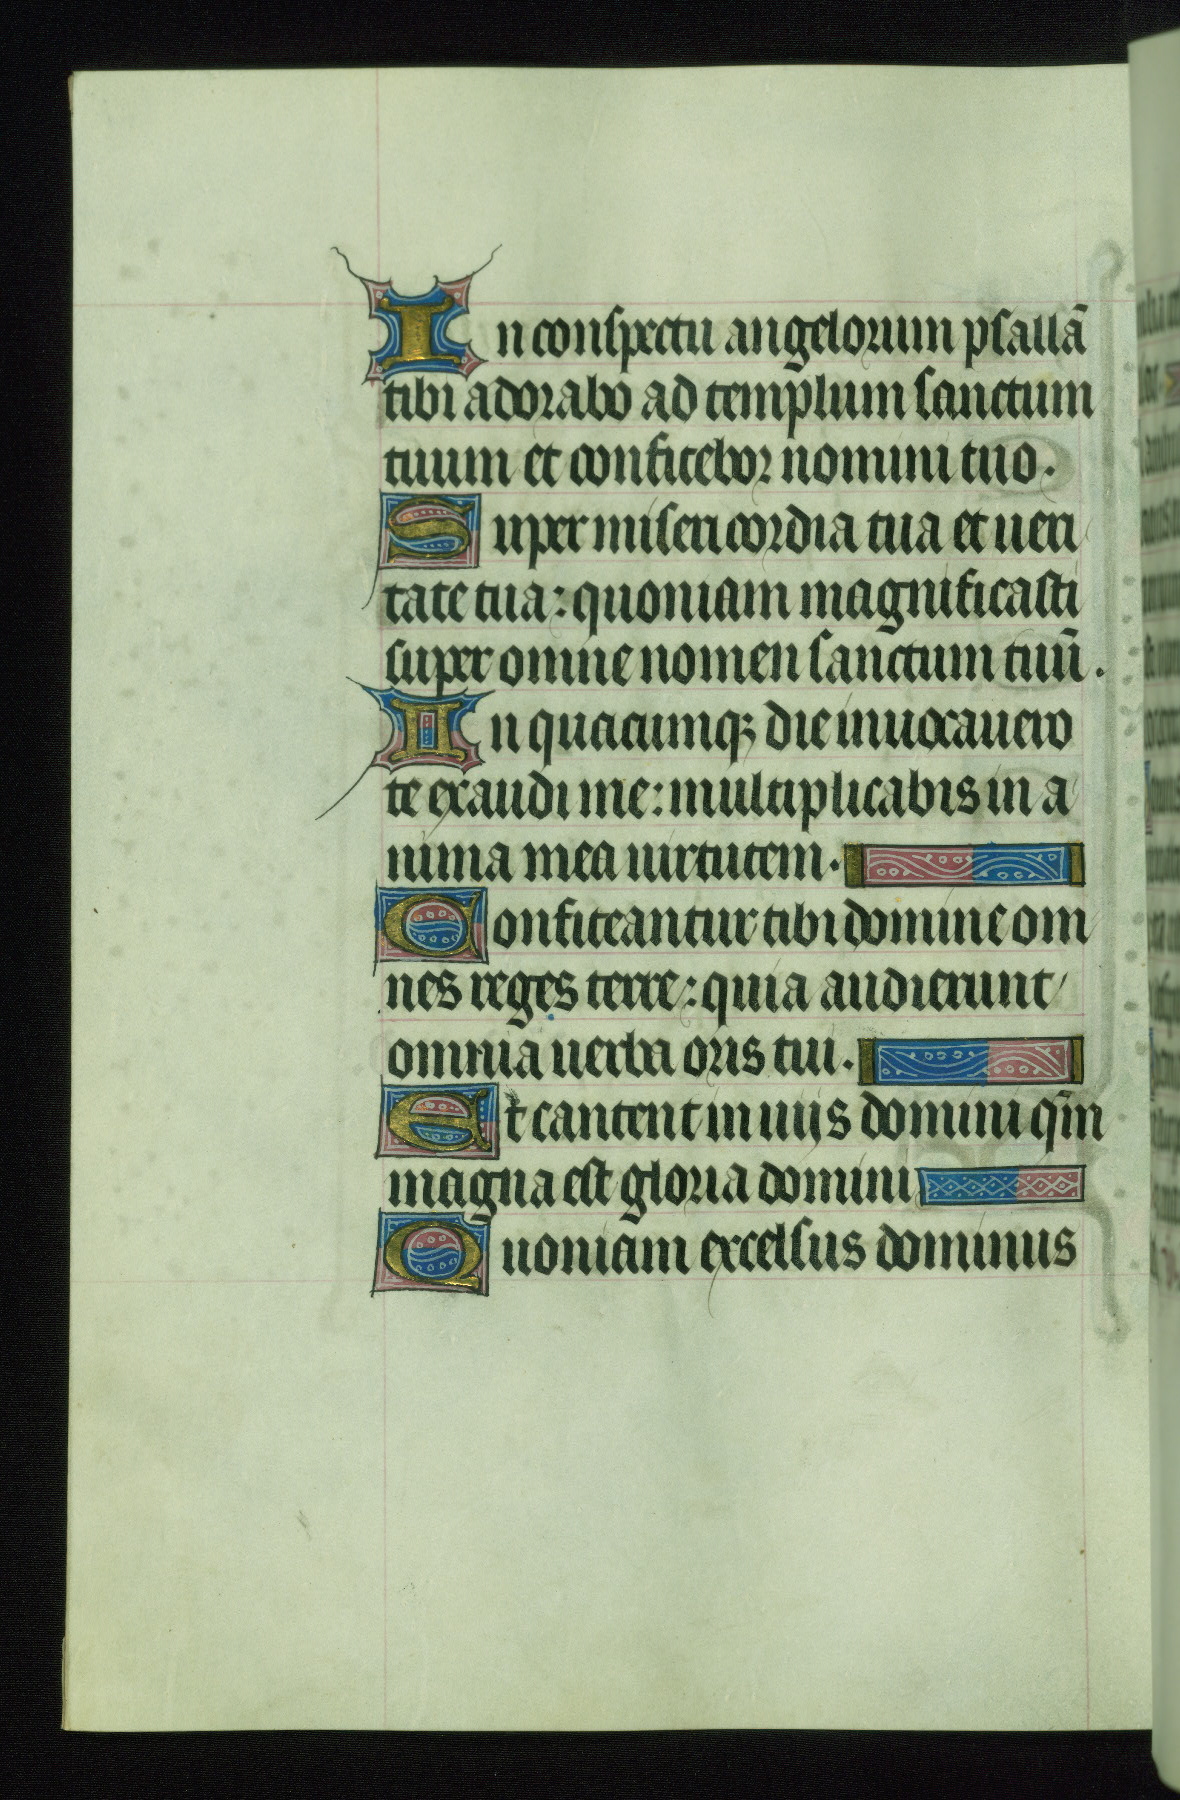 In conspectu angelorum psallā
tibi adorabo ad templum sanctum
tuum et confitebor nomini tuo.
Super misericordia tua et ueri
tate tua: quoniam magnificasti
super omne nomen sanctum tuū.
In quacumqꝫ die inuocauero
te exaudi me: multiplicabis in a
nima mea uirtutem.
Confiteantur tibi domine om
nes reges terre: quia audierunt
omnia uerba oris tui.
Et cantent in uijs domini qm̄
magna est gloria domini
Quoniam excelsus dominus